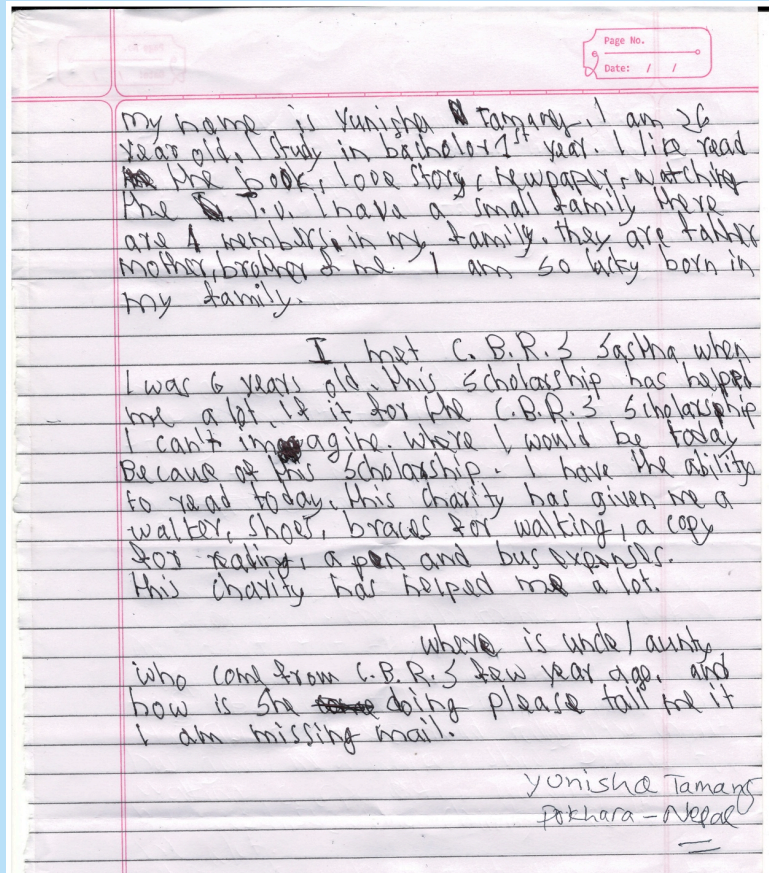 Page No.
Date: / /
My name is Yunisha Tamang. I am 26
year old. I study in bachelor 1st year. I like read
the book, love story, newpaper, watching
the T.V. I have a small family there
are 4 members in my family. they are father
mother, brother & me. I am so lucky born in
my family.
I met C.B.R.S Sastha when
I was 6 years old. this scholarship has helped
me a lot. If it for the C.B.R.S Scholarship
I can't imagine. where I would be today
Because of this Scholarship. I have the ability
to read today. this charity has given me a
walker, shoes, braces for walking, a copy
for reading, a pen and bus expenses.
this charity has helped me a lot.
where is uncle / aunty
who come from C.B.R.S few year ago. and
how is she doing please tall me it
I am missing mail.
Yunisha Tamang
Pokhara - Nepal